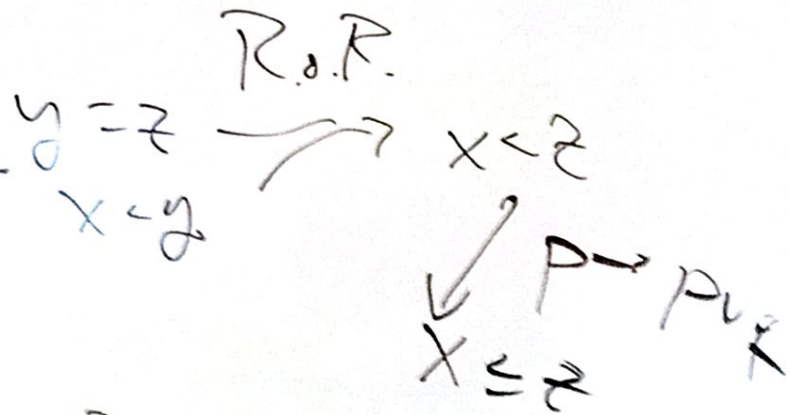 R.o.R.
y = z
x < z
x < y
p → p ∨
x ≤ z